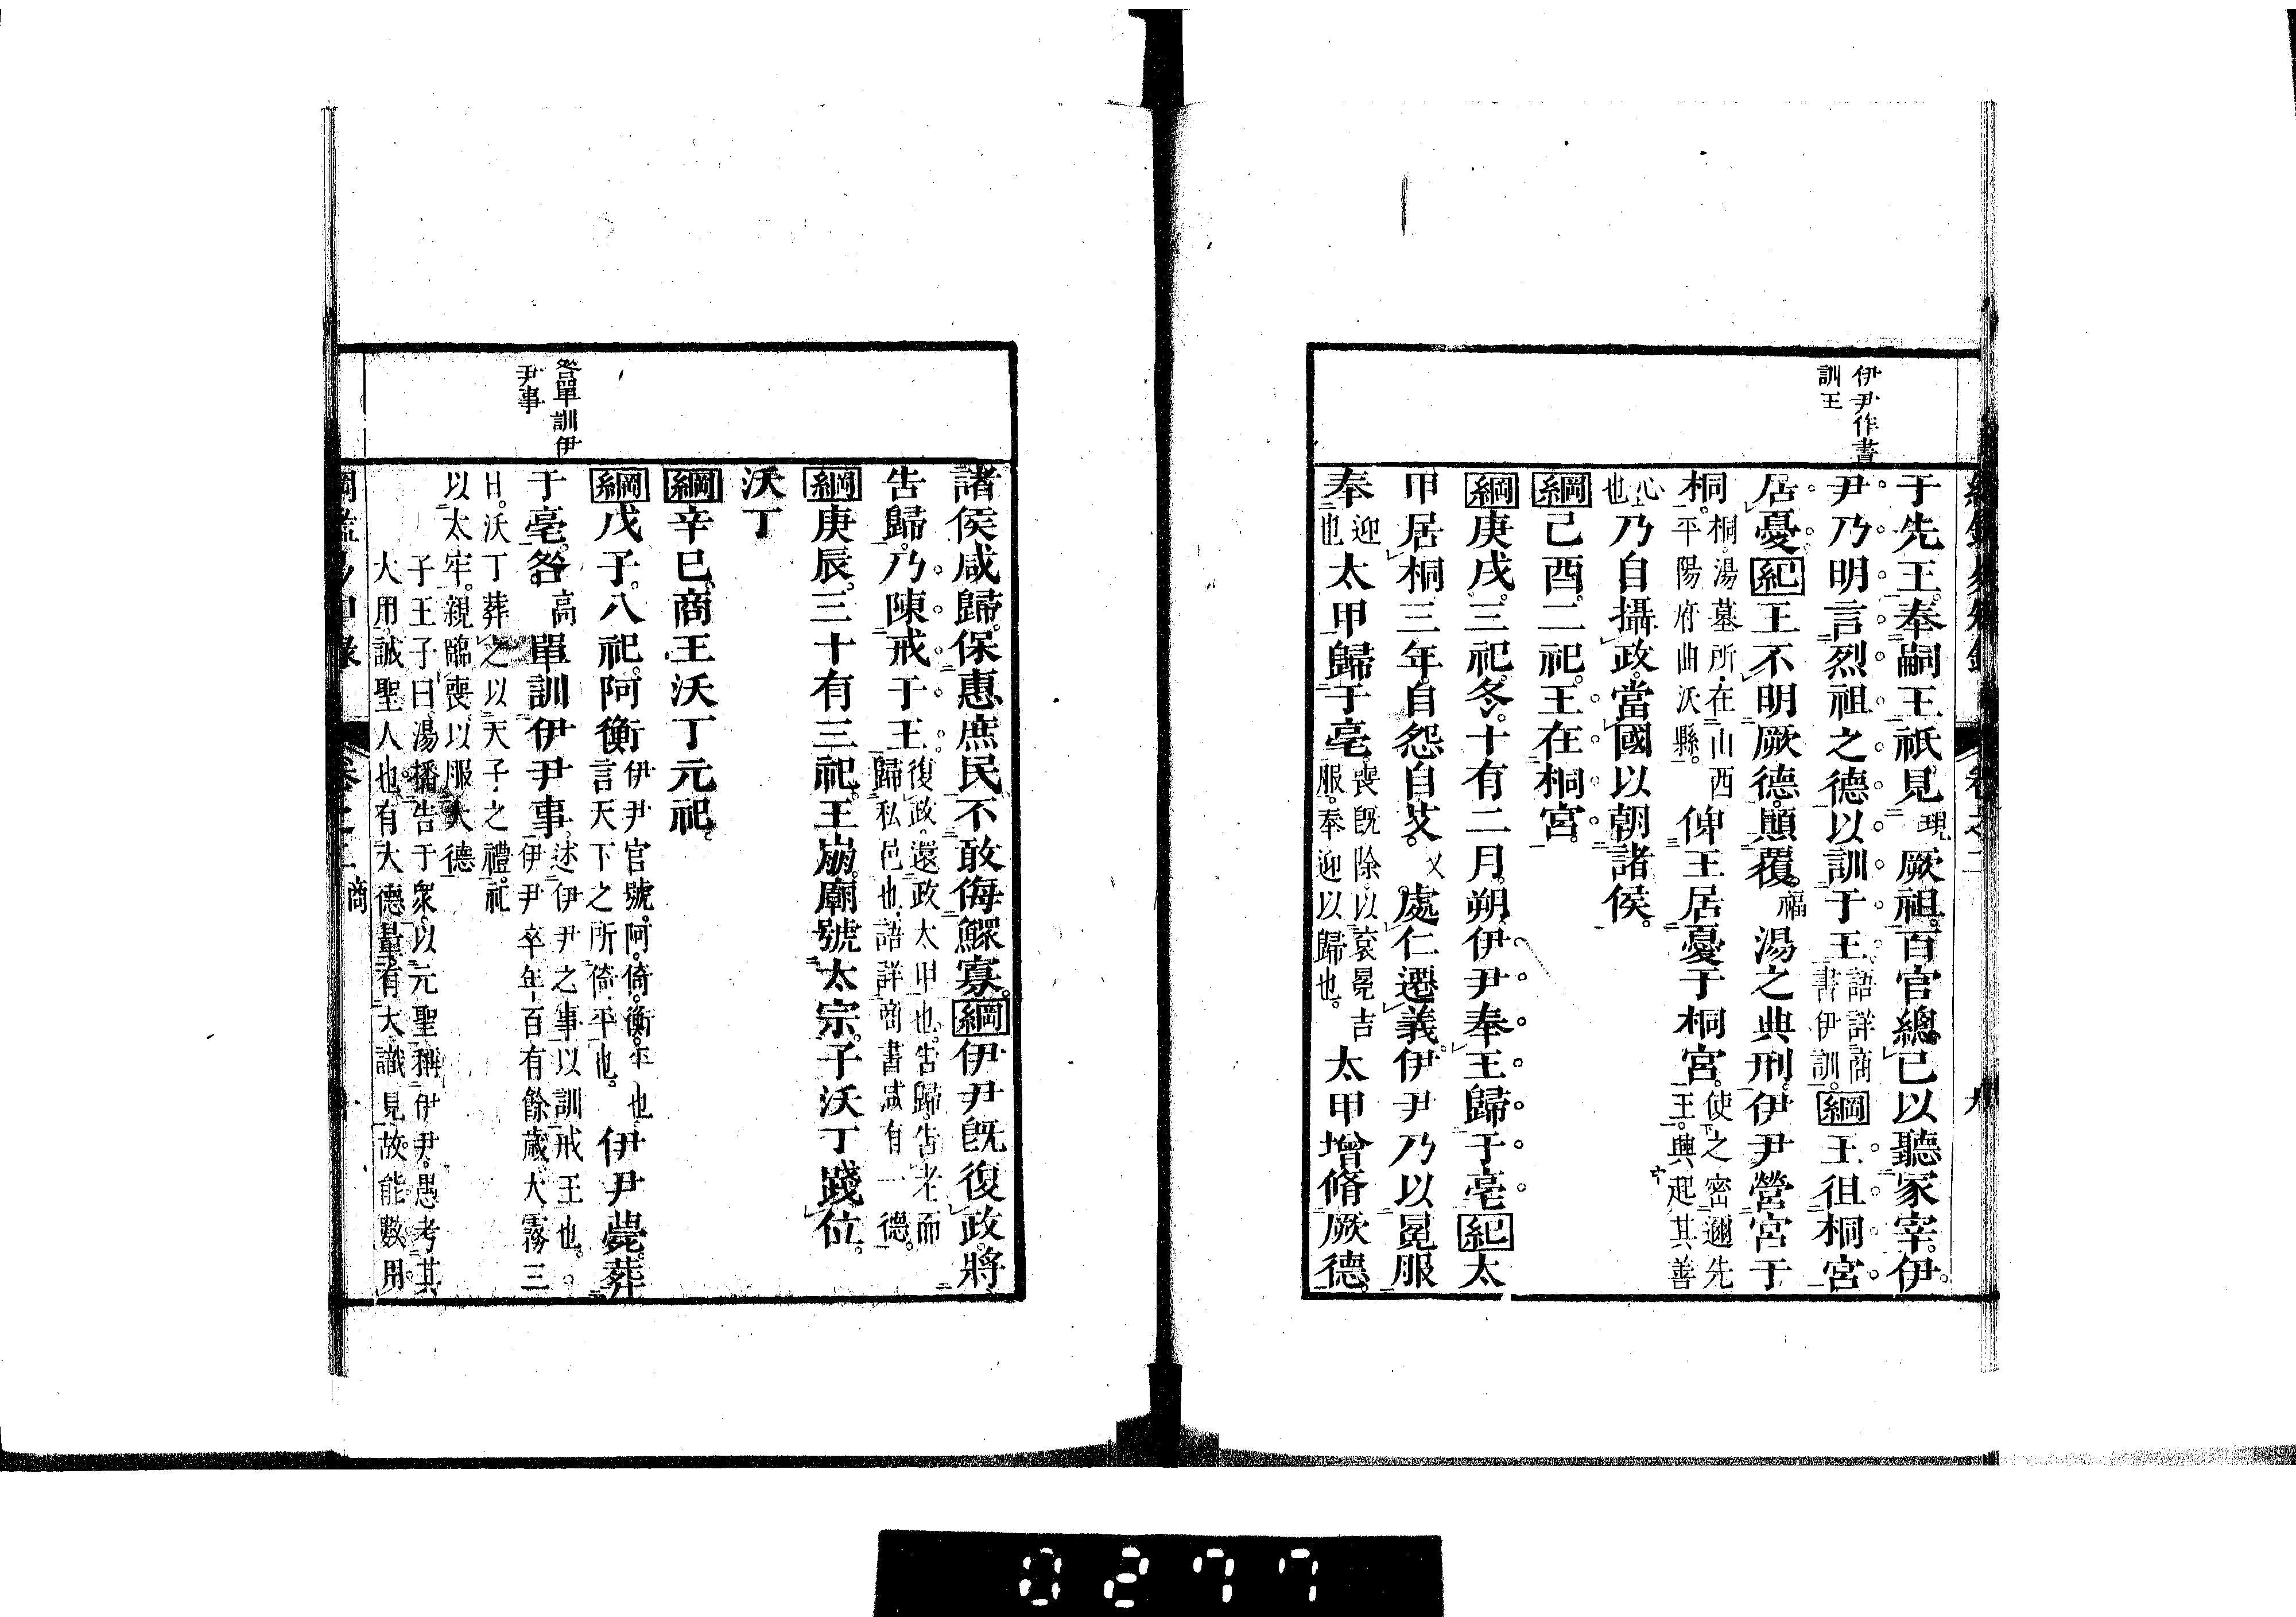 伊尹作書
訓王
于先王。奉嗣王祇見。現厥祖。百官總己以聽冢宰。伊
尹乃明言烈祖之德以訓于王。語詳商書伊訓。綱王徂桐宮
居憂。紀王不明厥德。顛覆。福湯之典刑。伊尹營宮于
桐。桐湯墓所在山西平陽府曲沃縣。俾王居憂于桐宮。使之密邇先王。興起其善
心也乃自攝政。當國以朝諸侯。
綱己酉。二祀。王在桐宮。
綱庚戌。三祀。冬。十有二月。朔。伊尹奉王歸于亳。紀太
甲居桐三年。自怨自艾。乂處仁遷義。伊尹乃以冕服
奉迎也太甲歸于亳。喪旣除以袞冕吉服。奉迎以歸也。太甲增脩厥德。
諸侯咸歸。保惠庶民。不敢侮鰥寡。綱伊尹旣復政。將
告歸。乃陳戒于王。復政。還政太甲也。告歸。告老而歸私邑也。語詳商書咸有一德。
綱庚辰。三十有三祀。王崩。廟號太宗。子沃丁踐位。
沃丁
綱辛巳。商王沃丁元祀。
綱戊子。八祀。阿衡伊尹官號。阿。倚。衡。平也。言天下之所倚平也。伊尹薨。葬
于亳。咎高單訓伊尹事。述伊尹之事以訓戒王也。。伊尹卒年百有餘歲。大霧三
日。沃丁葬之以天子之禮。祀
以太牢。親臨喪。以服大德
子王子曰。湯播告于衆。以元聖稱伊尹。愚考其
大用。誠聖人也。有大德量。有大識見。故能數用
咎單訓伊
尹事
商
0277